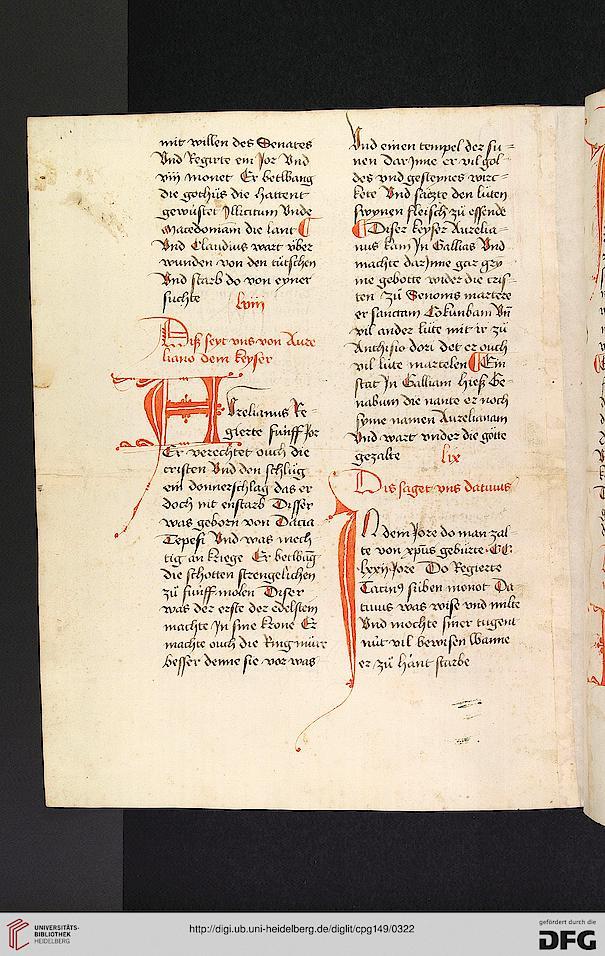 mit willen des Senates
Vnd Regirte ein Jor Vnd
viij monet Er betwang
die gothus die hattent
gewustet Illiricum Vnde
Macedoniam die lant
Vnd Claudius wart vber
wunden von den tutschen
Vnd starb do von eyner
suchte lviij
Diß seyt vns von Aure
liano dem keyser
AVrelianus Re-
gierte funff Jor
Er verechtet ouch die
cristen Vnd den schlug
ein donnerschlag das er
doch nit enstarb Disser
was geborn von Dacia
Vnd was mech
tig an kriege Er betwāg
die schotten strengelichen
zü funff molen Diser
was der erste der edelstein
machte Jn sine krone Er
machte ouch die Ringmüre
besser denne sie vor was
Vnd einen tempel der su-
nen dar Jnne er vil gol-
des vnd gesteynes wirc-
kete Vnd saczte den lüten
swynen fleisch zü essende
Diser keyser Aurelia-
nus kam Jn Gallias Vnd
machte dar Jnne gar gry
me gebotte wider die cris-
ten zü Senonis martere
er sanctam Columbam Vn̄
vil ander lüte mit ir zü
dori det er ouch
vil lüte martelen Ein
stat Jn Galliam hieß Ge-
nabum die nante er noch
syme namen Aurelianam
Vnd wart vnder die götte
gezalte lix
Dis saget vns datiuus
JN dem Jore do man zal
te von xpus gebürte CC
lxxij Jore Do Regierte
süben monot Da
tiuus was wise vnd milte
Vnd mochte siner tugent
nüt vil bewisen Wanne
er zü hant starbe
UNIVERSITÄTS-
BIBLIOTHEK
HEIDELBERG
http://digi.ub.uni-heidelberg.de/diglit/cpg149/0322
gefördert durch die
DFG